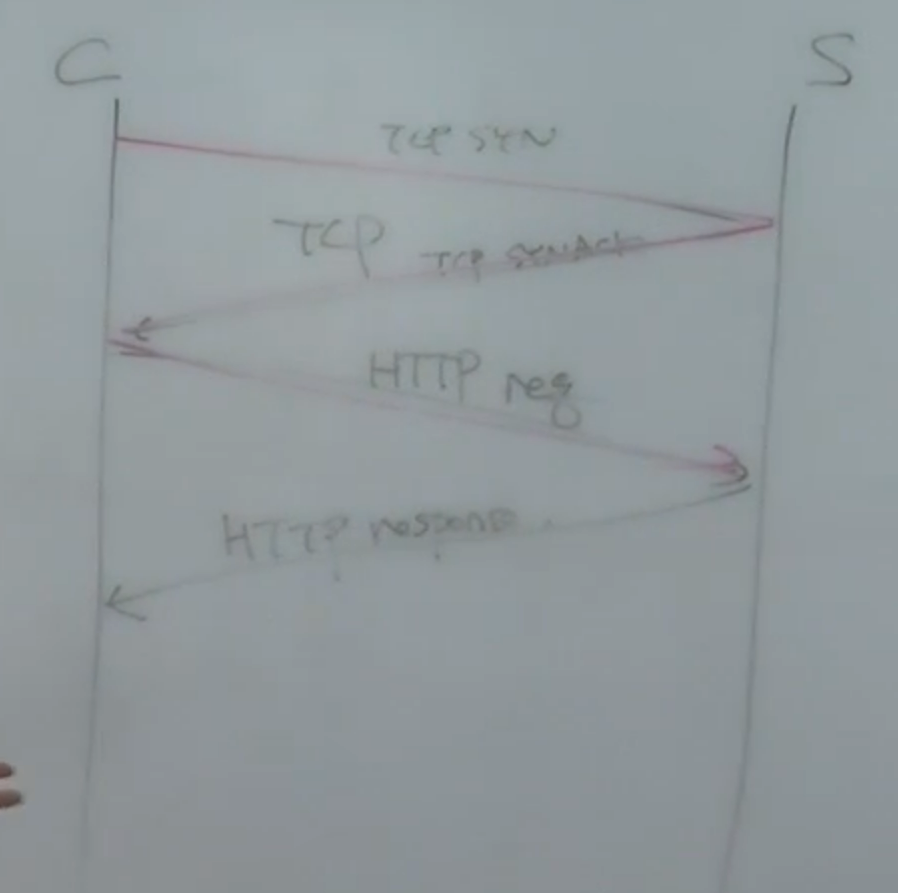 C
S
TCP SYN
TCP
TCP SYNACK
HTTP req
HTTP response